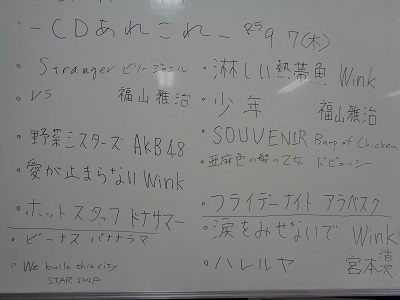 -CDあれこれ- R5 9.7(木)
・Stranger ビリージョエル
・VS 福山雅治
・野菜シスターズ AKB48
・愛が止まらない Wink
・ホットスタッフ ドナサマー
・ビーナス バナナラマ
・We built this city
STARSHIP
・淋しい熱帯魚 Wink
・少年 福山雅治
・SOUVENIR Bump of Chicken
・亜麻色の髪の乙女 ドビュッシー
・フライデーナイト アラベスク
・涙をみせないで Wink
・ハレルヤ 宮本浩次